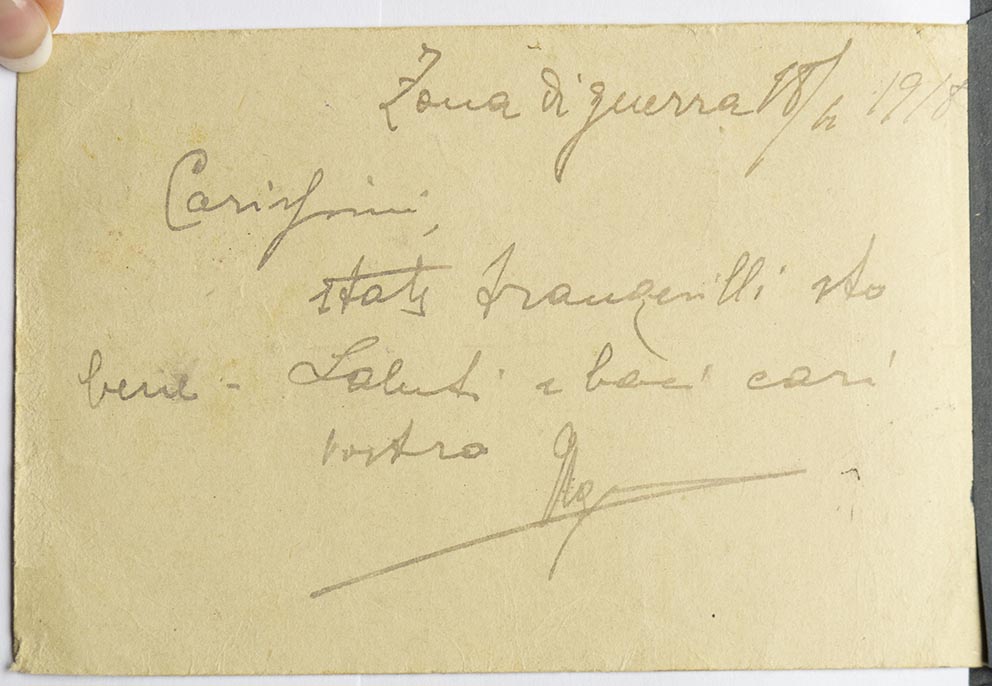 Zona di guerra 18/ 1918
Carissimi,
state tranquilli sto
bene - Saluti e baci cari
vostro